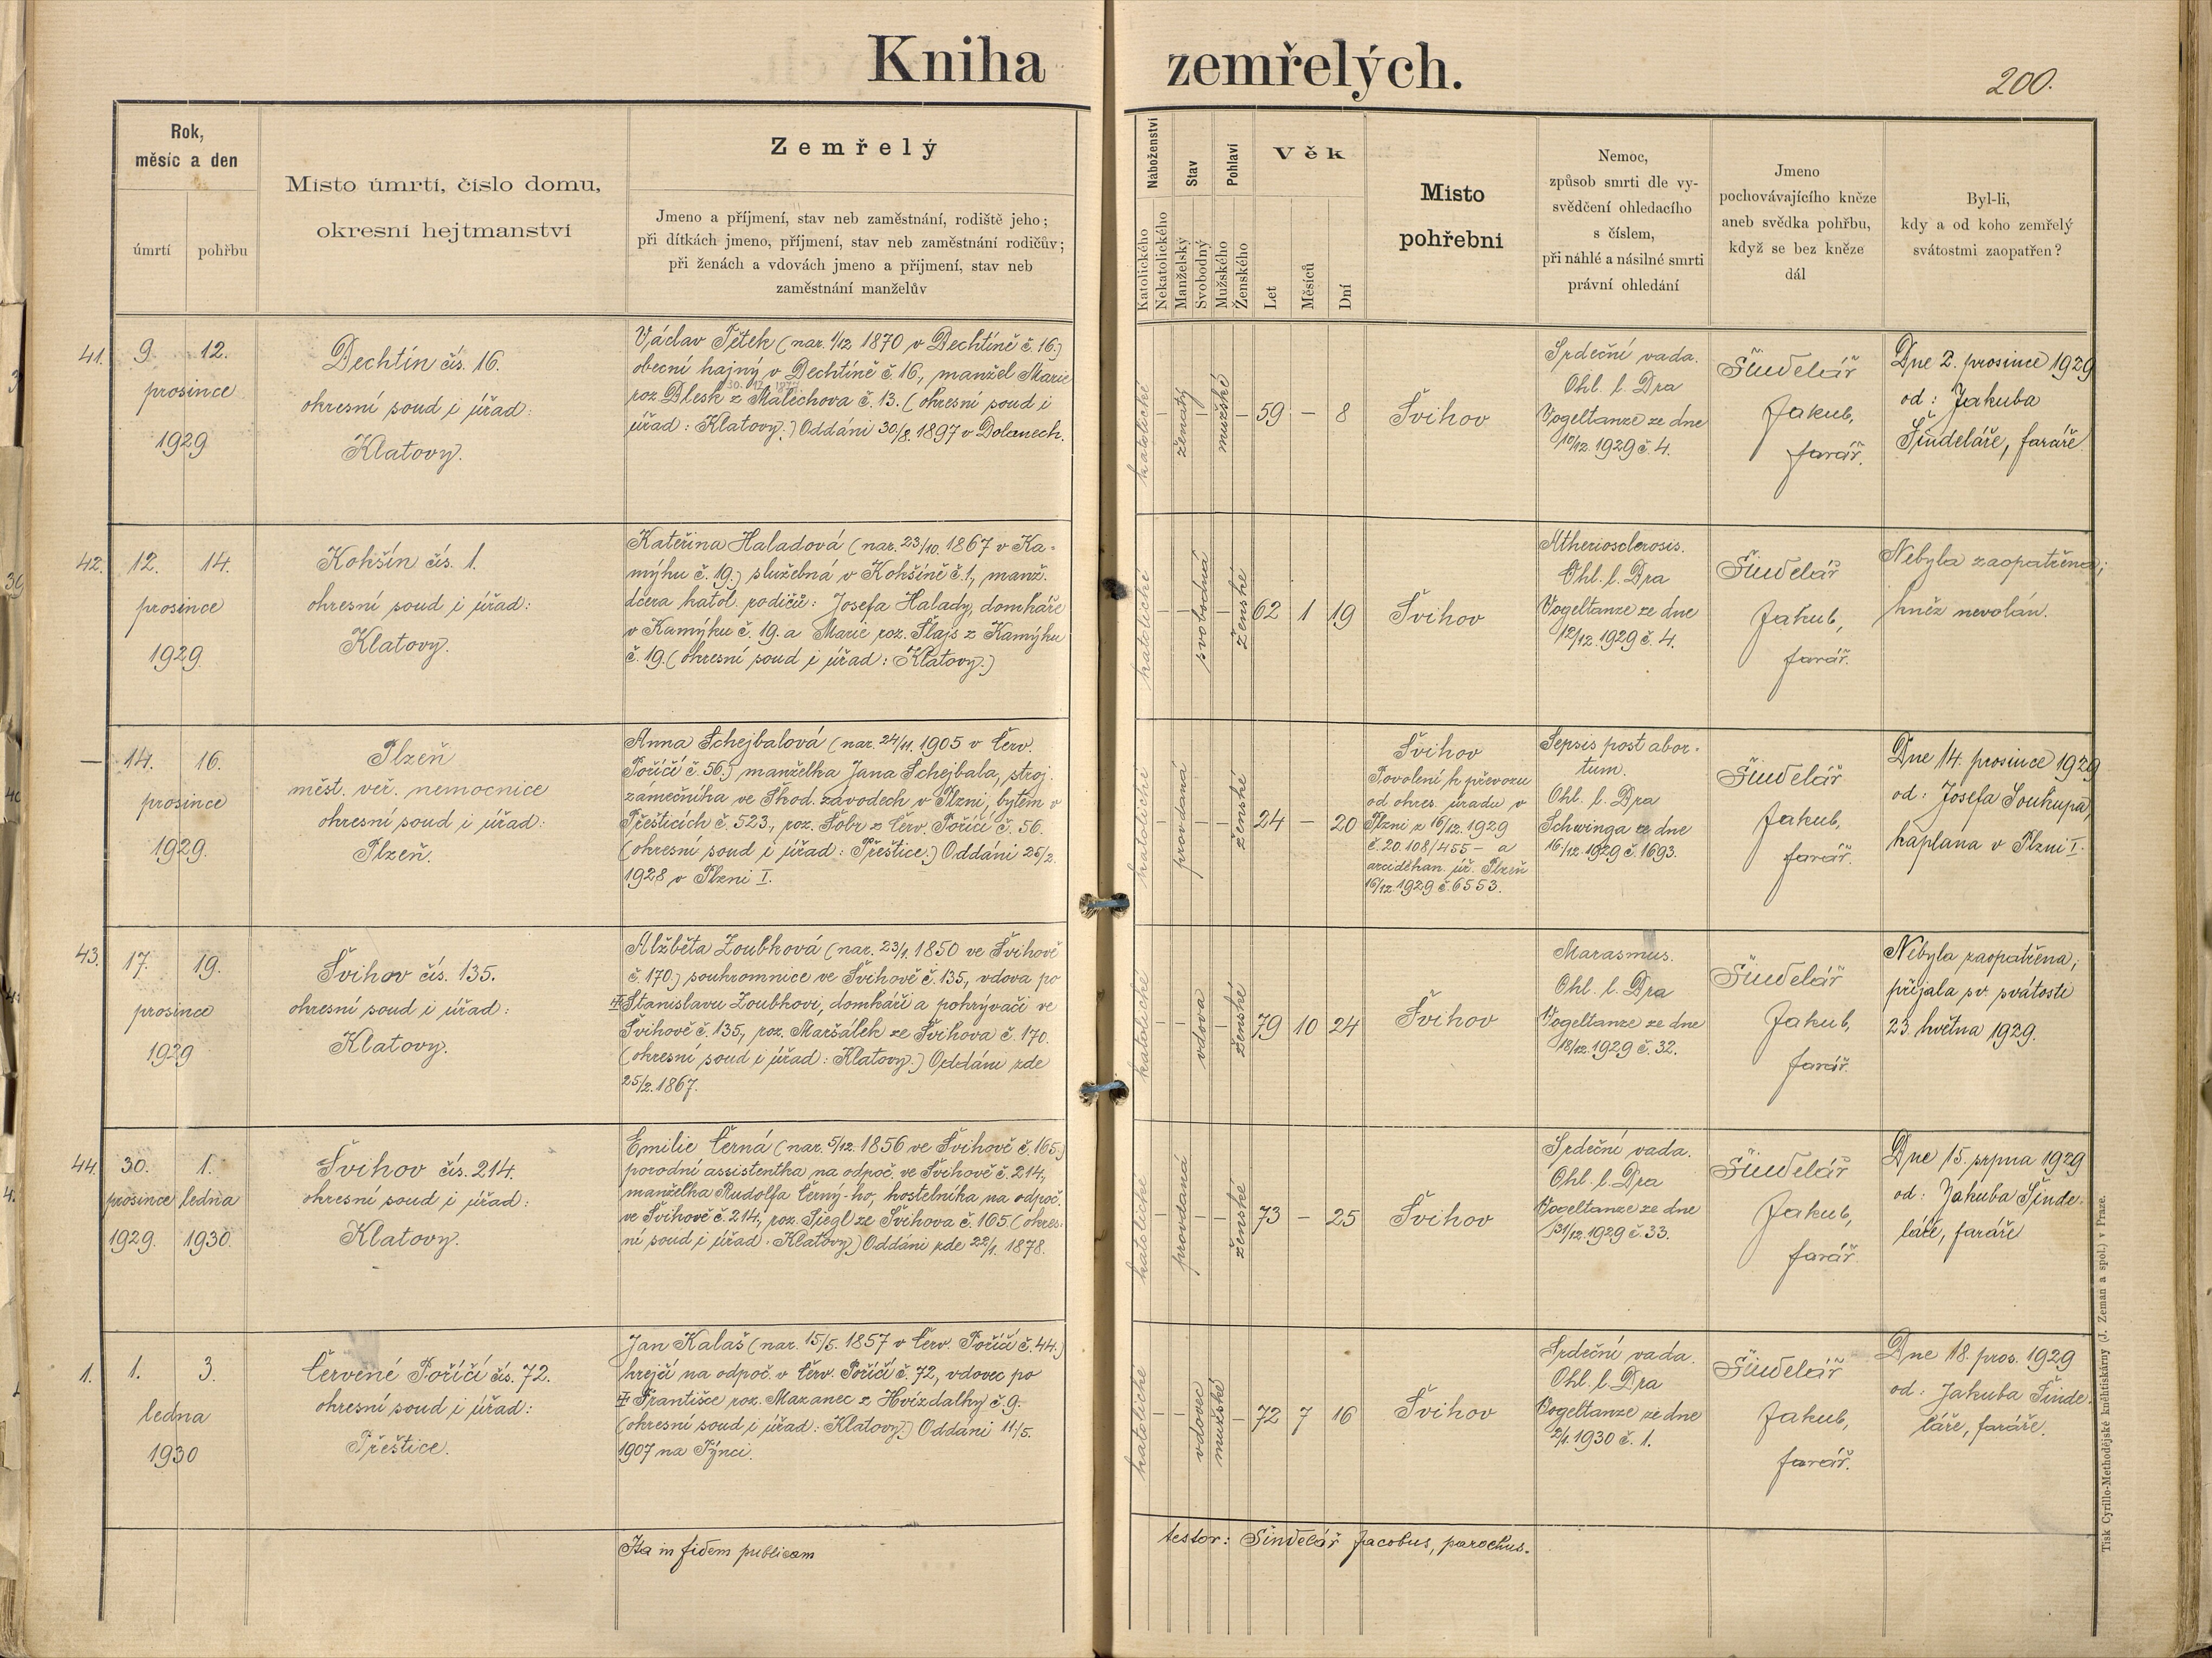 Kniha zemřelých.
200.
Rok,
měsíc a den
úmrtí
pohřbu
Místo úmrtí, číslo domu,
okresní hejtmanství
Zemřelý
Jmeno a příjmení, stav neb zaměstnání, rodiště jeho;
při dítkách jmeno, příjmení, stav neb zaměstnání rodičův;
při ženách a vdovách jmeno a přijmení, stav neb
zaměstnání manželův
Náboženství
Katolického
Nekatolického
Stav
Manželský
Svobodný
Pohlaví
Mužského
Ženského
Věk
Let
Měsíců
Dní
Místo
pohřební
Nemoc,
způsob smrti dle vy-
svědčení ohledacího
s číslem,
při náhlé a násilné smrti
právní ohledání
Jmeno
pochovávajícího kněze
aneb svědka pohřbu,
když se bez kněze
dál
Byl-li,
kdy a od koho zemřelý
svátostmi zaopatřen?
41.
9. 12.
prosince
1929
Dechtín čís. 16.
okresní soud i úřad:
Klatovy.
Václav Tětek (nar. 1/12. 1870 v Dechtíně č. 16.)
obecní hajný v Dechtíně č. 16, manžel Marie
30. 12. 1877
roz. Dlesk z Malechova č. 13. (okresní soud i
úřad: Klatovy.) Oddáni 30/8. 1897 v Dolanech.
katolické
—
ženatý
—
mužské
—
59 — 8
Švihov
Srdeční vada.
Ohl. l. Dra
Vogeltanze ze dne
10/12. 1929 č. 4.
Šindelář
Jakub,
farář.
Dne 2. prosince 1929
od: Jakuba
Šindeláře, faráře
42.
12. 14.
prosince
1929.
Kohšín čís. 1.
okresní soud i úřad:
Klatovy.
Kateřina Haladová (nar. 23/10. 1867 v Ka-
mýku č. 19.) služebná v Kohšíně č. 1., manž.
dcera katol. rodičů: Josefa Halady, domkáře
v Kamýku č. 19. a Marie roz. Šlajs z Kamýku
č. 19. (okresní soud i úřad: Klatovy.)
katolické
—
—
svobodná
—
ženské
62 1 19
Švihov
Atheriosclerosis.
Ohl. l. Dra
Vogeltanze ze dne
12/12. 1929 č. 4.
Šindelář
Jakub,
farář.
Nebyla zaopatřena;
kněz nevolán.
—
14. 16.
prosince
1929.
Plzeň
měst. veř. nemocnice
okresní soud i úřad:
Plzeň.
Anna Schejbalová (nar. 24/11. 1905 v Červ.
Poříčí č. 56.) manželka Jana Schejbala, stroj.
zámečníka ve Škod. závodech v Plzni, bytem v
Přešticích č. 523., roz. Sobr z Červ. Poříčí č. 56.
(okresní soud i úřad: Přeštice.) Oddáni 25/2.
1928 v Plzni I.
katolické
—
provdaná
—
—
ženské
24 — 20
Švihov
Povolení k převozu
od okres. úřadu v
Plzni z 16/12. 1929
č. 20.108/455 - a
arciděkan. úř. Plzeň
16/12. 1929 č. 6553.
Sepsis post abor-
tum.
Ohl. l. Dra
Schwinga ze dne
16/12. 1929 č. 1693.
Šindelář
Jakub,
farář.
Dne 14. prosince 1929
od: Josefa Soukupa,
kaplana v Plzni I.
43.
17. 19.
prosince
1929
Švihov čís. 135.
okresní soud i úřad:
Klatovy.
Alžběta Zoubková (nar. 23/1. 1850 ve Švihově
č. 170.) soukromnice ve Švihově č. 135., vdova po
Stanislavu Zoubkovi, domkáři a pokrývači ve
Švihově č. 135, roz. Maršálek ze Švihova č. 170.
(okresní soud i úřad: Klatovy.) Oddáni zde
25/2. 1867.
katolické
—
—
vdova
—
ženské
79 10 24
Švihov
Marasmus.
Ohl. l. Dra
Vogeltanze ze dne
18/12. 1929 č. 32.
Šindelář
Jakub,
farář.
Nebyla zaopatřena;
přijala sv. svátosti
23. května 1929.
44.
30. 1.
prosince ledna
1929. 1930.
Švihov čís. 214.
okresní soud i úřad:
Klatovy.
Emilie Černá (nar. 5/12. 1856 ve Švihově č. 165.)
porodní assistentka na odpoč. ve Švihově č. 214,
manželka Rudolfa Černý-ho, kostelníka na odpoč.
ve Švihově č. 214., roz. Siegl ze Švihova č. 165. (okres-
ní soud i úřad: Klatovy.) Oddáni zde 22/1. 1878.
katolické
—
provdaná
—
—
ženské
73 — 25
Švihov
Srdeční vada.
Ohl. l. Dra
Vogeltanze ze dne
31/12. 1929 č. 33.
Šindelář
Jakub,
farář.
Dne 15. srpna 1929
od: Jakuba Šinde-
láře, faráře
1.
1. 3.
ledna
1930
Červené Poříčí čís. 72.
okresní soud i úřad:
Přeštice.
Jan Kalaš (nar. 15/5. 1857 v Červ. Poříčí č. 44.)
krejčí na odpoč. v Červ. Poříčí č. 72, vdovec po
Františce roz. Mazanec z Hvízdalky č. 9.
(okresní soud i úřad: Klatovy.) Oddáni 11/5.
1907 na Týnci.
katolické
—
—
vdovec
mužské
—
72 7 16
Švihov
Srdeční vada.
Ohl. l. Dra
Vogeltanze ze dne
2/1. 1930 č. 1.
Šindelář
Jakub,
farář.
Dne 18. pros. 1929
od: Jakuba Šinde-
láře, faráře.
Ita in fidem publicam testor: Šindelář Jacobus, parochus.
Tisk Cyrillo-Methodějské kněhtiskárny (J. Zeman a spol.) v Praze.